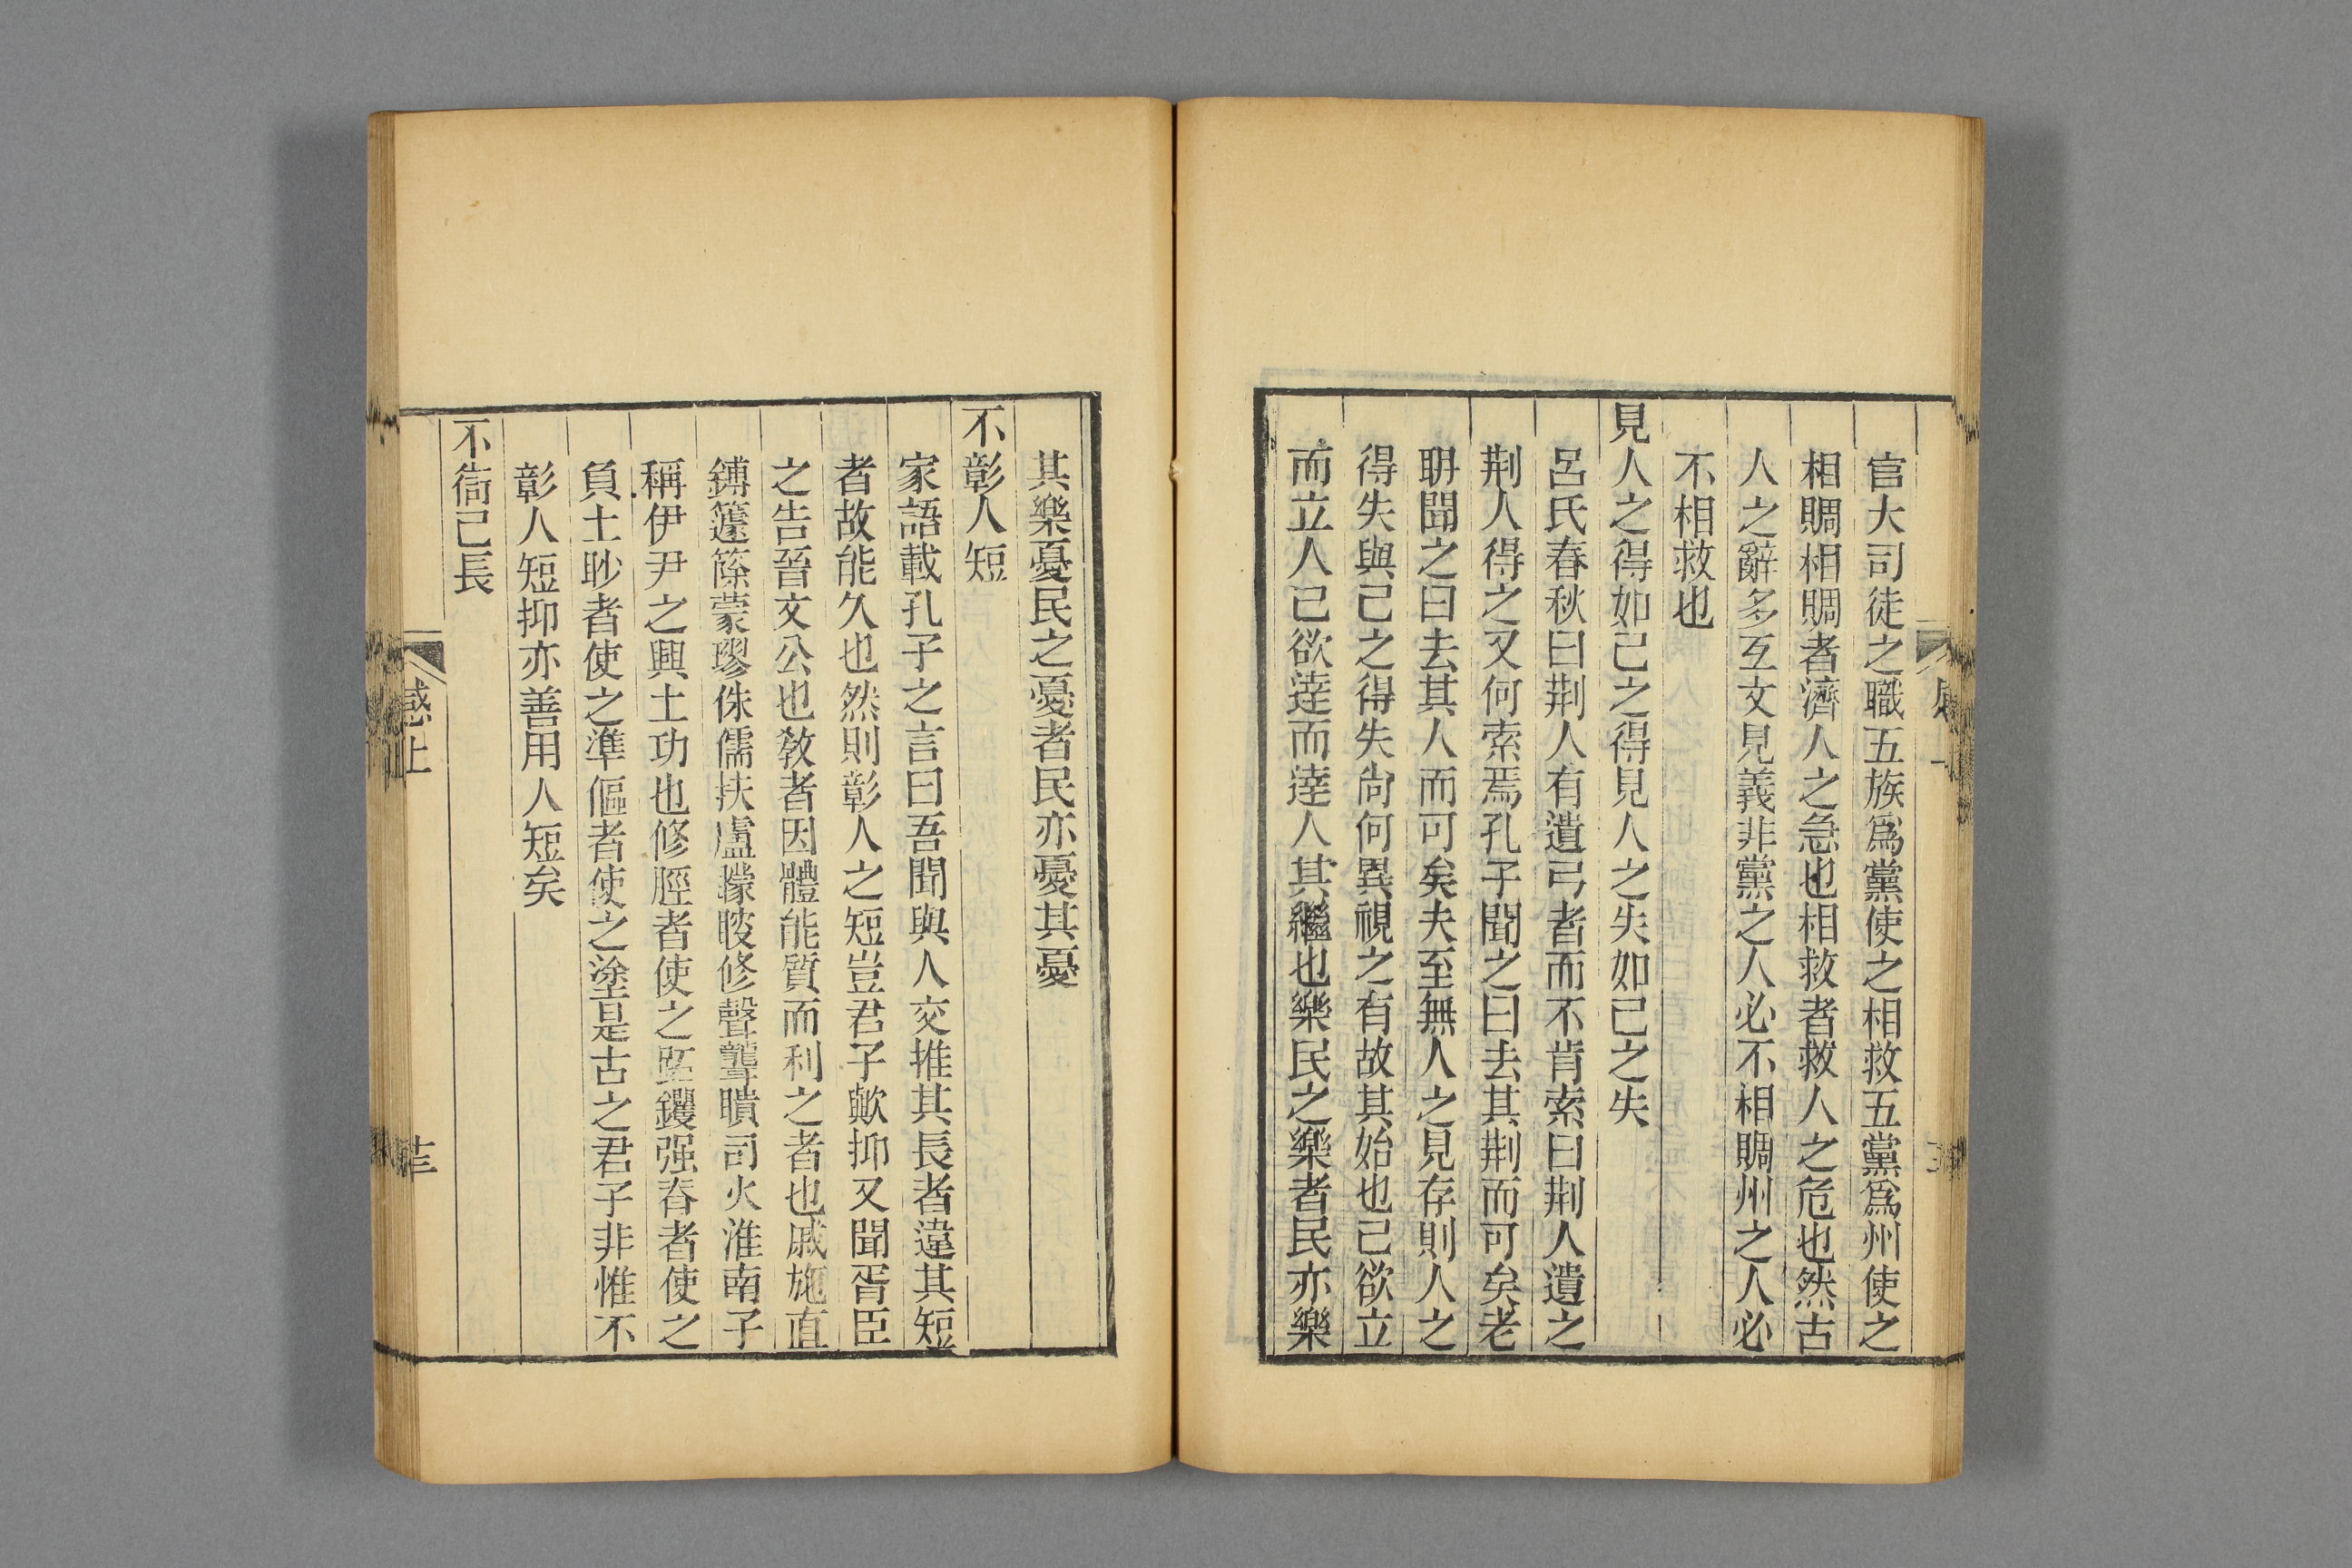 官大司徒之職五族爲黨使之相救五黨爲州使之
相賙相賙者濟人之急也相救者救人之危也然古
人之辭多互文見義非黨之人必不相賙州之人必
不相救也
見人之得如己之得見人之失如己之失
呂氏春秋曰荆人有遺弓者而不肯索曰荆人遺之
荆人得之又何索焉孔子聞之曰去其荆而可矣老
耼聞之曰去其人而可矣夫至無人之見存則人之
得失與己之得失尙何異視之有故其始也己欲立
而立人己欲逹而逹人其繼也樂民之樂者民亦樂
其樂憂民之憂者民亦憂其憂
不彰人短
家語載孔子之言曰吾聞與人交推其長者違其短
者故能久也然則彰人之短豈君子歟抑又聞胥臣
之告晉文公也敎者因體能質而利之者也戚施直
鎛籧篨蒙璆侏儒扶盧矇瞍修聲聾聵司火淮南子
稱伊尹之興土功也修脛者使之跖钁强脊者使之
負土眇者使之準傴者使之塗是古之君子非惟不
彰人短抑亦善用人短矣
不衒己長
感上